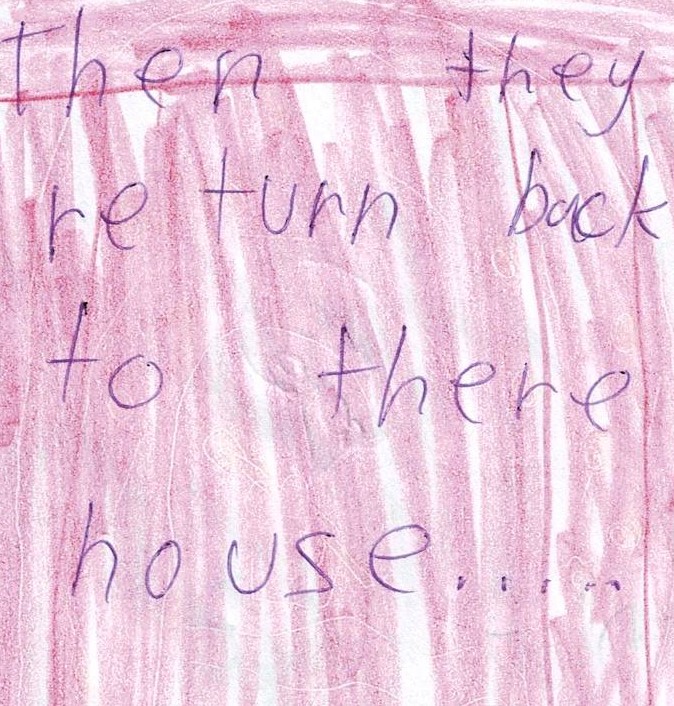 then they
return back
to there
house.....